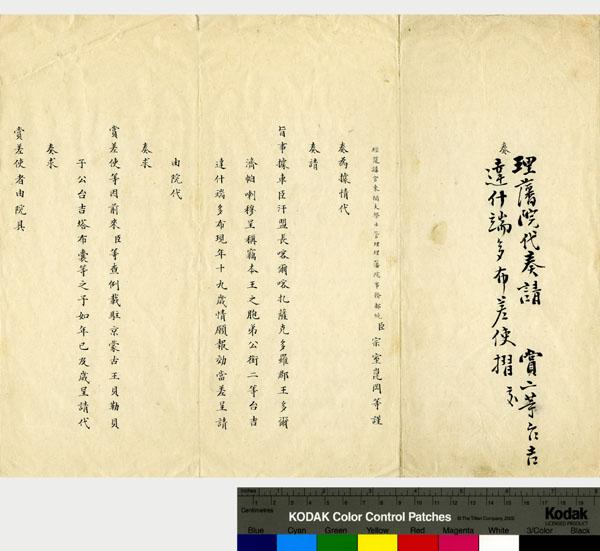 奏
理藩院代奏請 賞二等台吉
達什端多布差使摺 交
經筵講官東閣大學士管理理藩院事務都統臣宗室崑岡等謹
奏為據情代
奏請
旨事據車臣汗盟長喀爾喀扎薩克多羅郡王多爾
濟帕喇穆呈稱竊本王之胞弟公銜二等台吉
達什端多布現年十九歲情願報効當差呈請
由院代
奏求
賞差使等因前來臣等查例載駐京蒙古王貝勒貝
子公台吉塔布囊等之子如年已及歲呈請代
奏求
賞差使者由院具
inches
Centimetres
KODAK Color Control Patches
© The Tiffen Company, 2000
Kodak
LICENSED PRODUCT
Blue Cyan Green Yellow Red Magenta White 3/Color Black